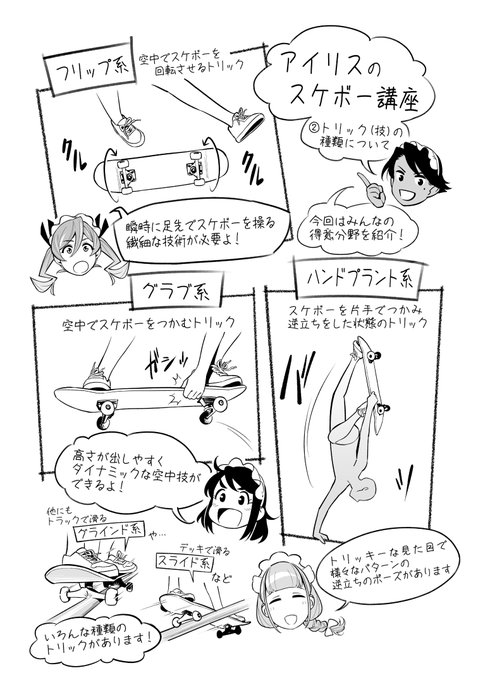 アイリスの
スケボー講座
②トリック(技)の
種類について
今回はみんなの
得意分野を紹介!
フリップ系
空中でスケボーを
回転させるトリック
クル
クル
瞬時に足先でスケボーを操る
繊細な技術が必要よ!
ハンドプラント系
スケボーを片手でつかみ
逆立ちをした状態のトリック
バッ
トリッキーな見た目で
様々なパターンの
逆立ちのポーズがあります
グラブ系
空中でスケボーをつかむトリック
ガシッ
高さが出しやすく
ダイナミックな空中技が
できるよ!
他にも
トラックで滑る
グラインド系
や…
デッキで滑る
スライド系
など
いろんな種類の
トリックがあります!